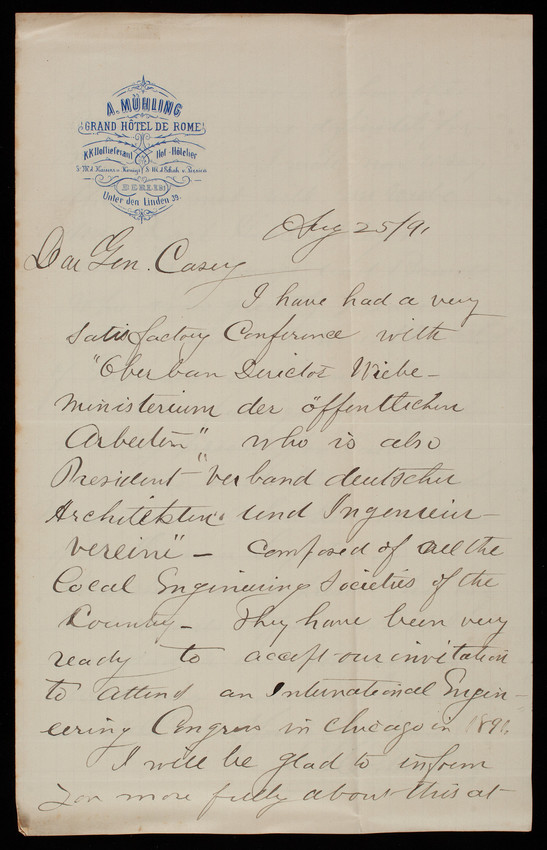 A. MÜHLING
GRAND HÔTEL DE ROME
K.K. Hoflieferant Hof-Hôtelier
S. M. d. Kaisers u. Königs S. M. d. Schah v. Persien
BERLIN
Unter den Linden 39.
Aug 25/91
Dear Gen. Casey
I have had a very
satisfactory Conference with
"Oberbau Director Wiebe-
Ministerium der öffentlichen
Arbeiten" who is also
President "Verband deutscher
Architekten und Ingenieur-
vereine" - composed of all the
local Engineering Societies of the
Country - They have been very
ready to accept our invitation
to attend an International Engin-
eering Congress in Chicago in 1891.
I will be glad to inform
you more fully about this at